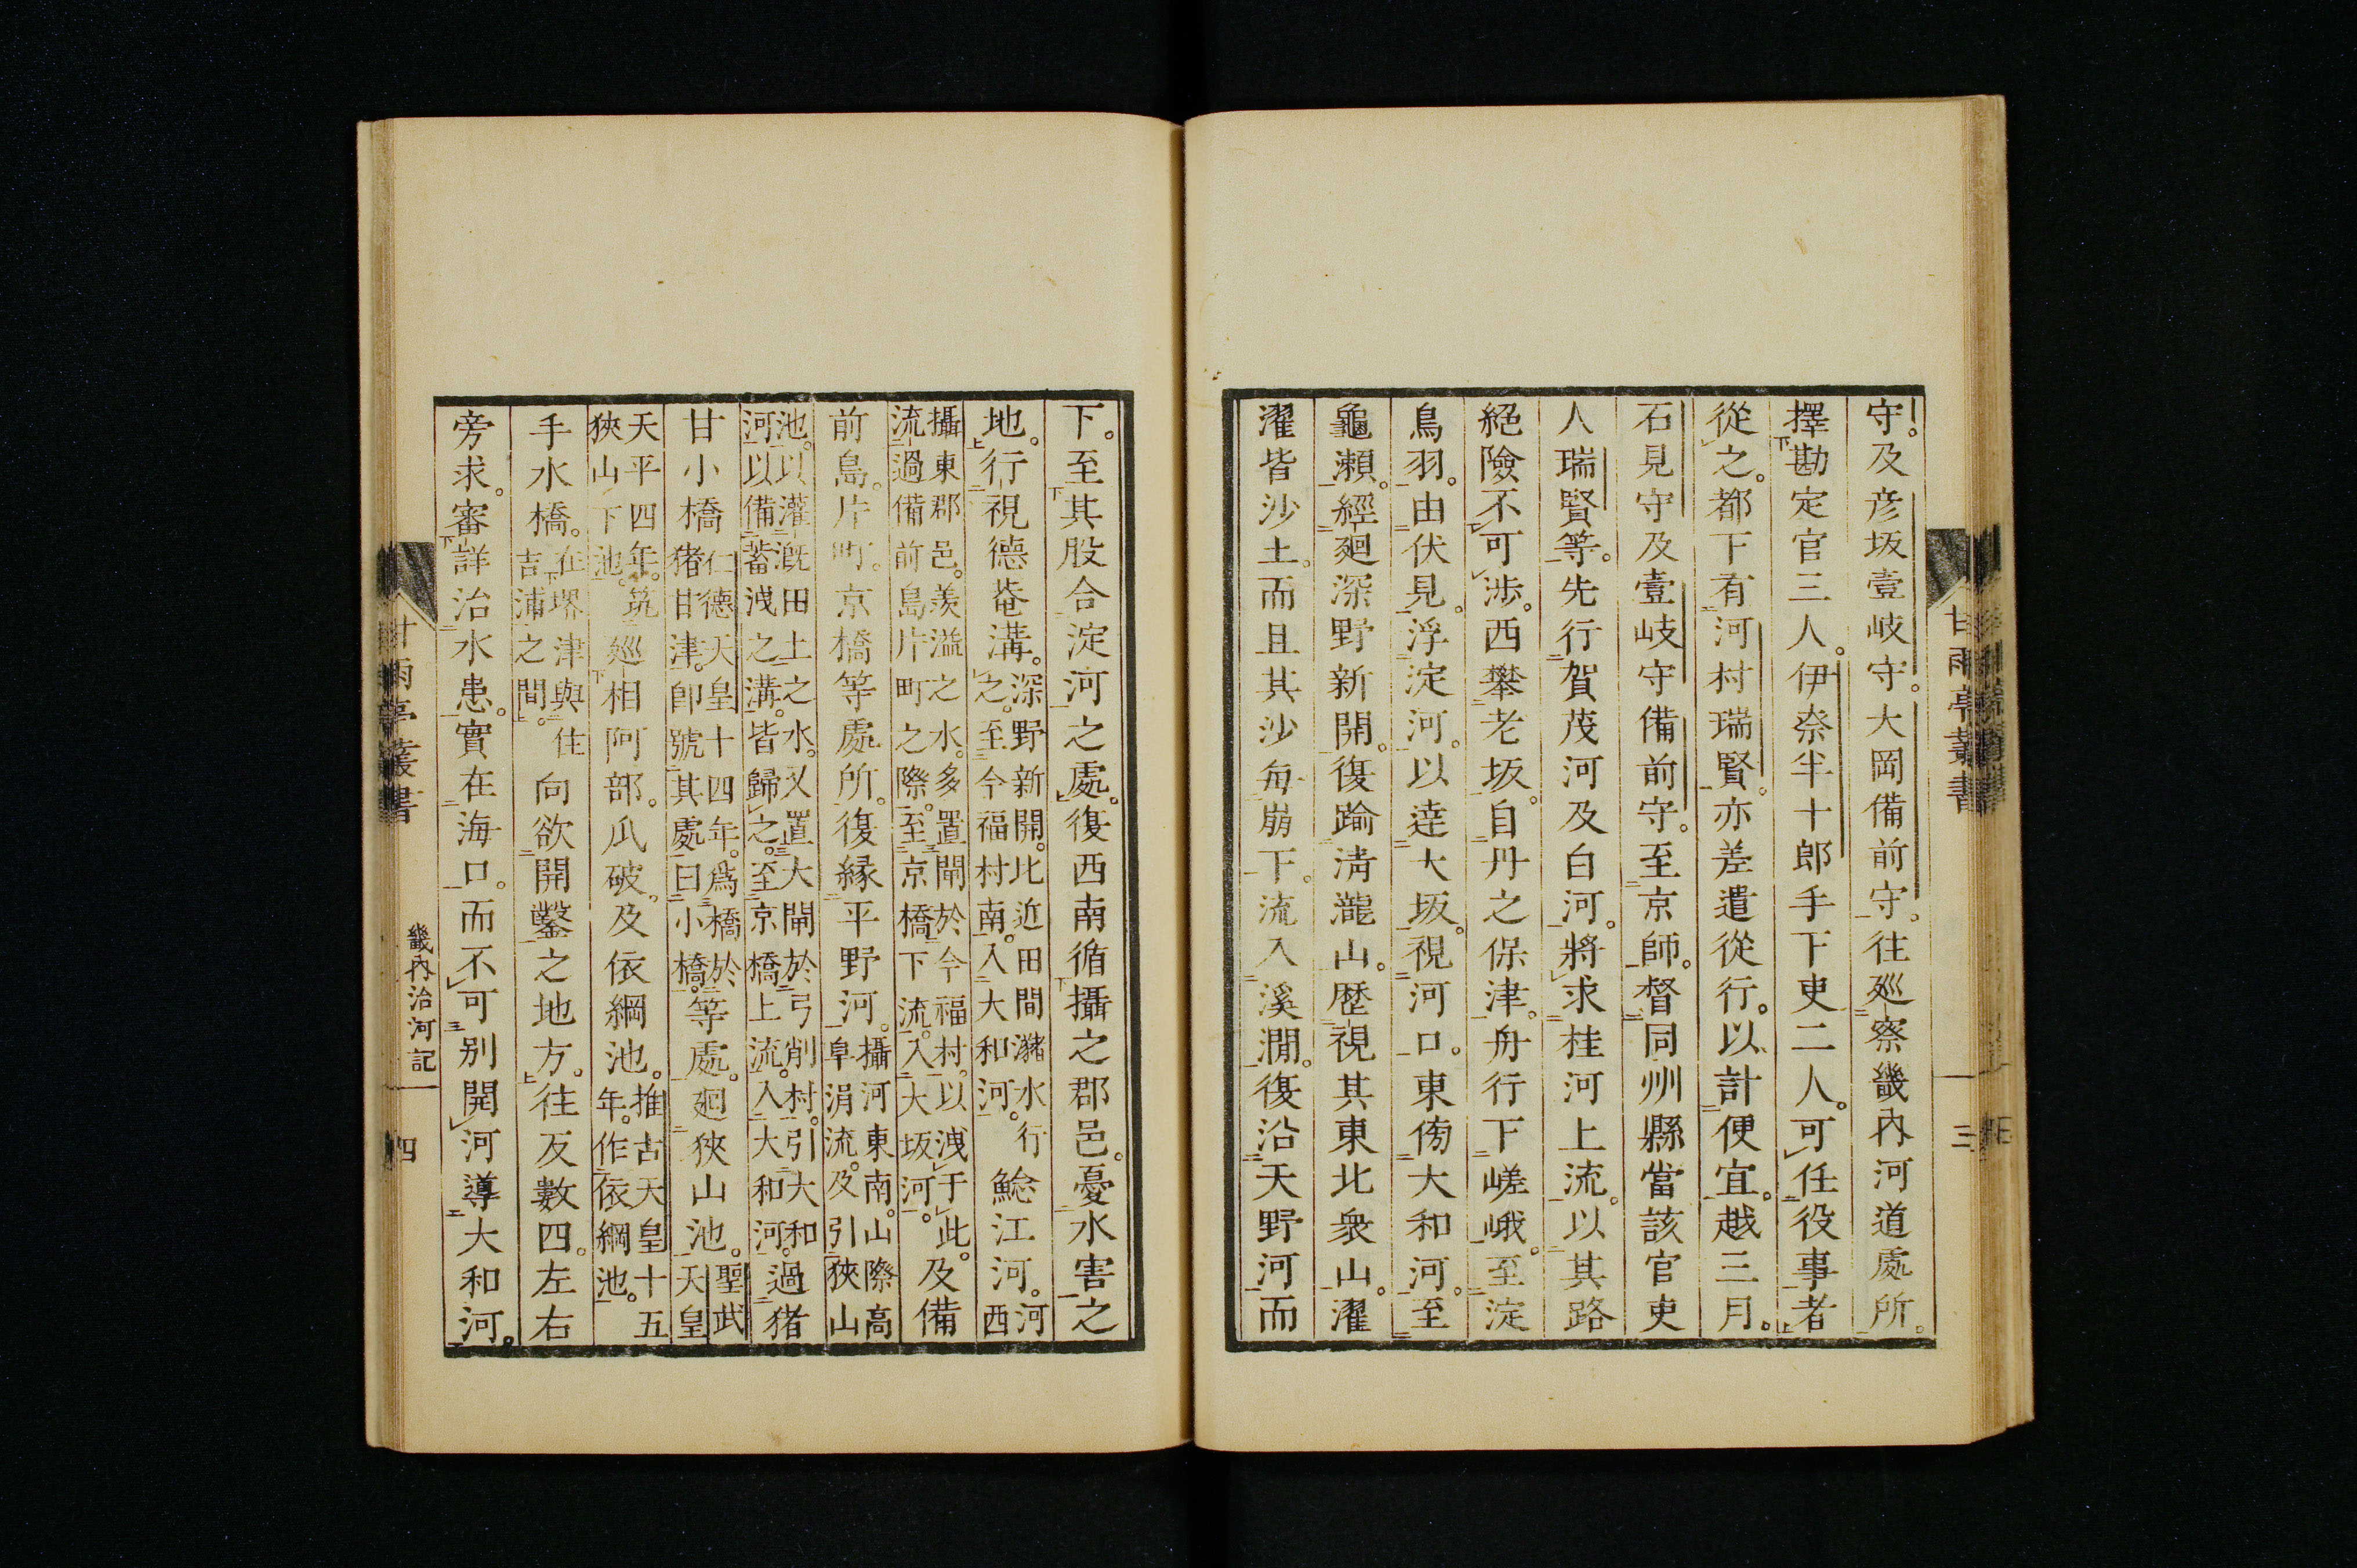 守。及彦坂壹岐守。大岡備前守。往廵察畿內河道處所。
擇勘定官三人。伊奈半十郎手下吏二人。可任役事者
從之。都下有河村瑞賢。亦差遣從行。以計便宜。越三月。
石見守及壹岐守備前守。至京師。督同州縣當該官吏
人瑞賢等。先行賀茂河及白河。將求桂河上流。以其路
絕險不可涉。西攀老坂。自丹之保津。舟行下嵯峨。至淀
鳥羽。由伏見。浮淀河。以達大坂。視河口。東傍大和河。至
龜瀬。經廻深野新開。復踰淸瀧山。歷視其東北衆山。濯
濯皆沙土。而且其沙每崩下。流入溪澗。復沿天野河而
甘雨亭叢書
三
下。至其股合淀河之處。復西南循攝之郡邑。憂水害之
地。行視德菴溝。深野新開。比近田間瀦水行
之。至今福村南。入大和河。鯰江河。河西
攝東郡邑。羨溢之水。多置閘於今福村。以洩于此。及備
流過備前島片町之際。至京橋下流。入大坂河。
前島。片町。京橋等處所。復緣平野河。攝河東南。山際高
阜涓流。及引狹山
池。以灌漑田土之水。又置大閘於弓削村。引大和
河以備蓄洩之溝。皆歸之。至京橋上流。入大和河。過猪
甘小橋仁德天皇十四年。爲橋於
猪甘津。卽號其處曰小橋。等處。廻狹山池。聖武
天皇
天平四年。筑
狹山下池。廵相阿部。瓜破。及依綱池。推古天皇十五
年。作依綱池。
手水橋。在堺津與住
吉浦之間。向欲開鑿之地方。往反數四。左右
旁求。審詳治水患。實在海口。而不可別開河導大和河。
甘雨亭叢書
畿內治河記
四